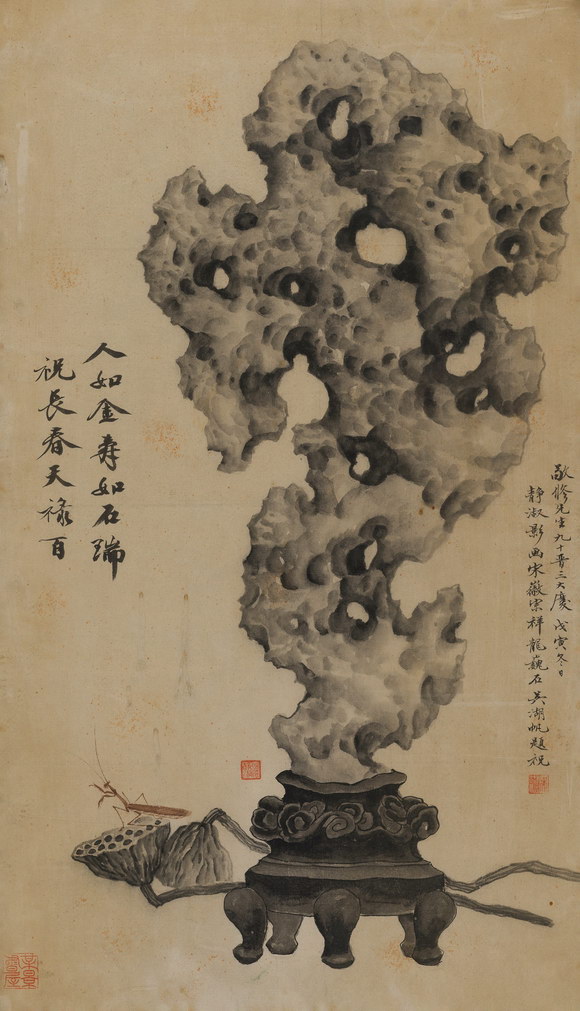 敬修先生九十晋三大慶 戊寅冬日
靜淑影画宋徽宗祥龍巍石吳湖帆題祝
人如金壽如石瑞
祝長春天祿百
某景書屋